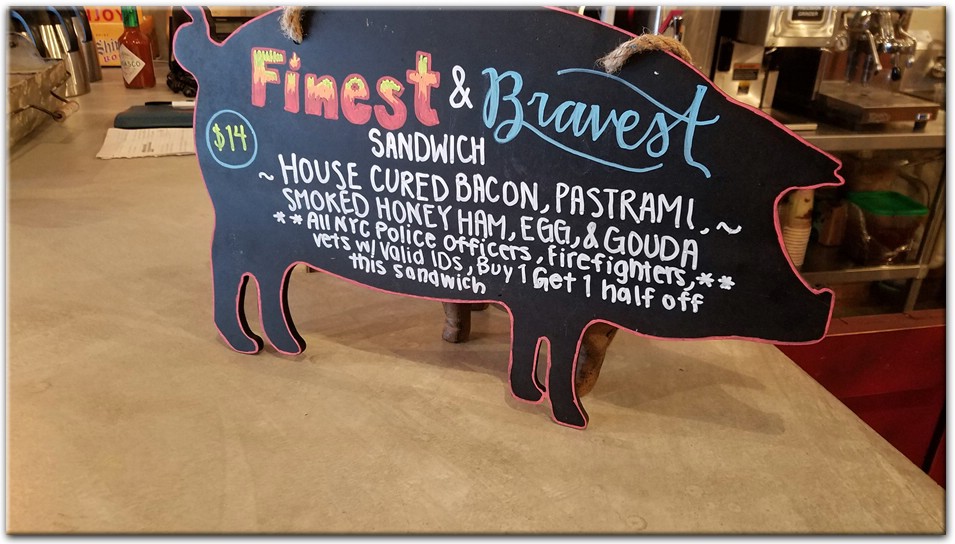 Finest & Bravest
$14
SANDWICH
~ HOUSE CURED BACON, PASTRAMI, ~
SMOKED HONEY HAM, EGG, & GOUDA
**All NYC Police Officers, Firefighters,**
vets w/ Valid IDs, Buy 1 Get 1 half off
this sandwich